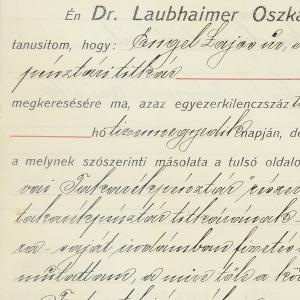 Én Dr. Laubhaimer Oszká
tanusitom, hogy: Engel Lajos úr, a
pénztári titkár
megkeresésére ma, azaz egyezerkilenczszáz
hó tizennegyedik napján, de
a melynek szószerinti másolata a tulsó oldalo
vai Takarékpénztár részvé
takarékpénztár titkárának
ra saját irodámban fizetés
mulattam, a mire tőle a kö